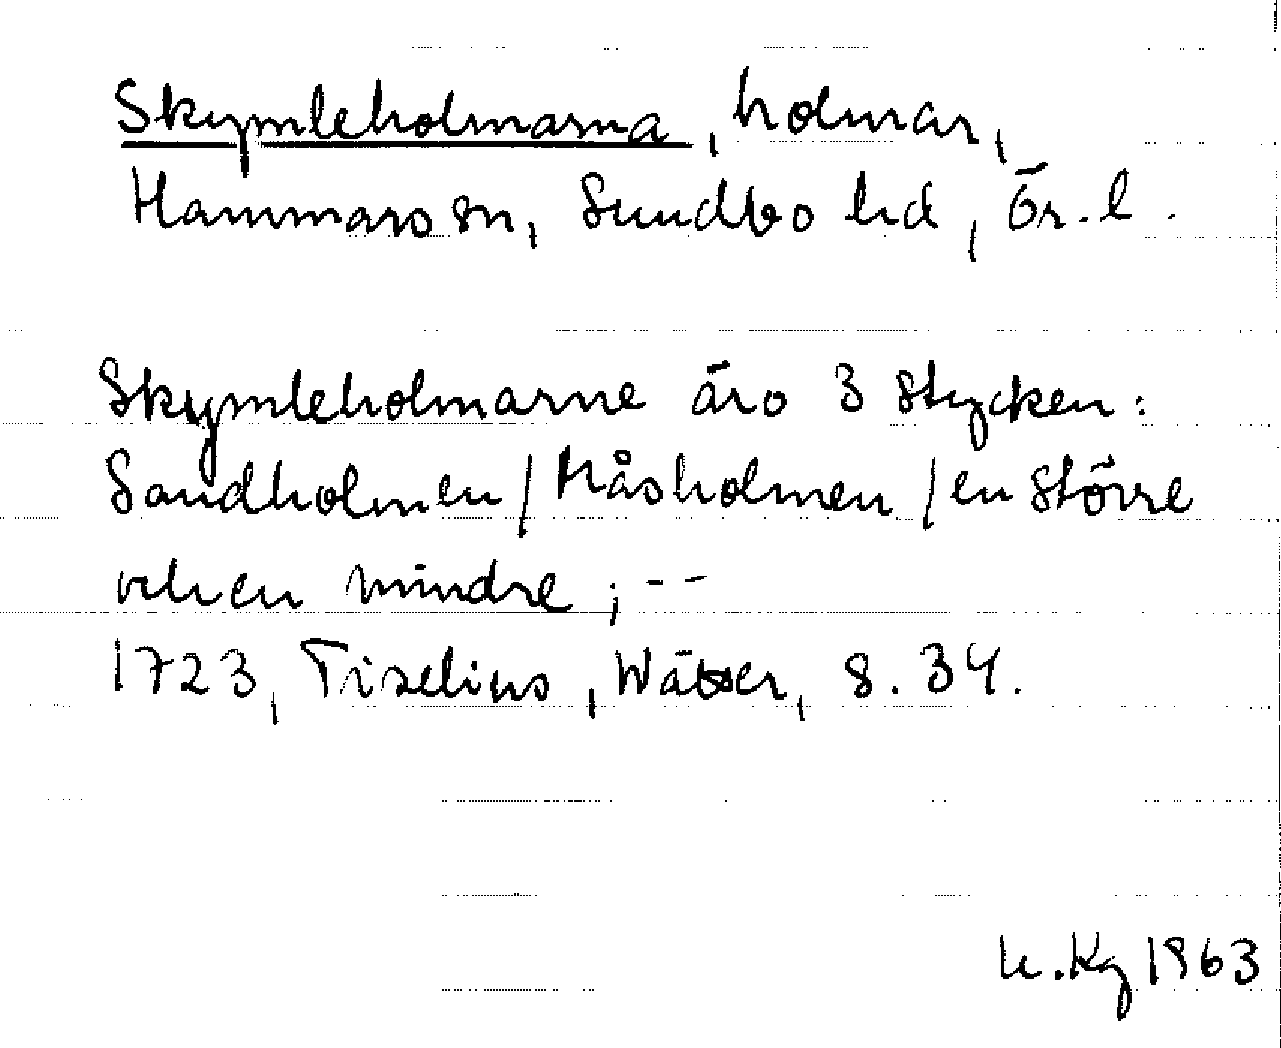 Skymleholmarna, holmar,
Hammars sn, Sundbo hd, Ör. l.
Skymleholmarne äro 3 stycken:
Sandholmen / Måsholmen / en större
och en mindre ; - -
1723, Tiselius, Wätter, s. 34.
Kg 1963